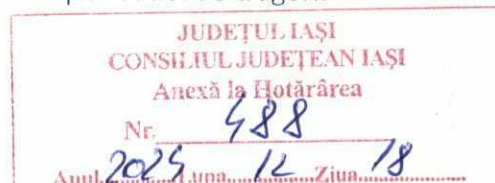 JUDEȚUL IAȘI
CONSILIUL JUDEȚEAN IAȘI
Anexă la Hotărârea
Nr. 488
Anul 2024 Luna 12 Ziua 18